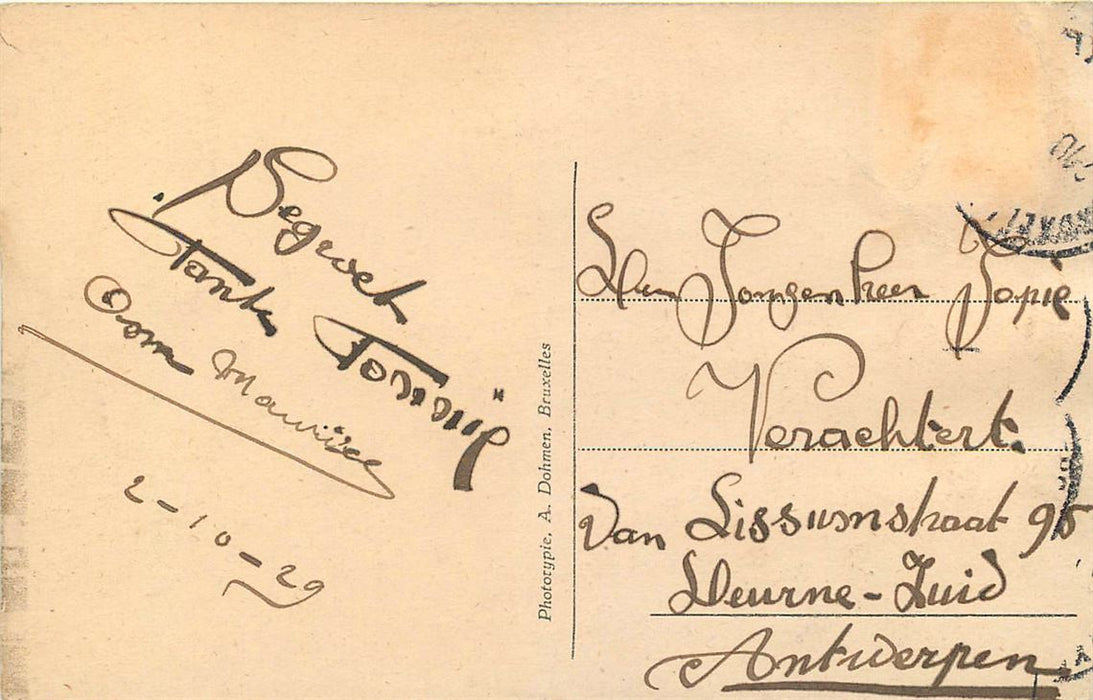 Begroet
Tante
Oom Maurice
2-10-29
Phototypie. A. Dohmen. Bruxelles
Den Jongenheer Jopie
Verachtert.
Van Lissumstraat 95
Deurne-Zuid
Antwerpen